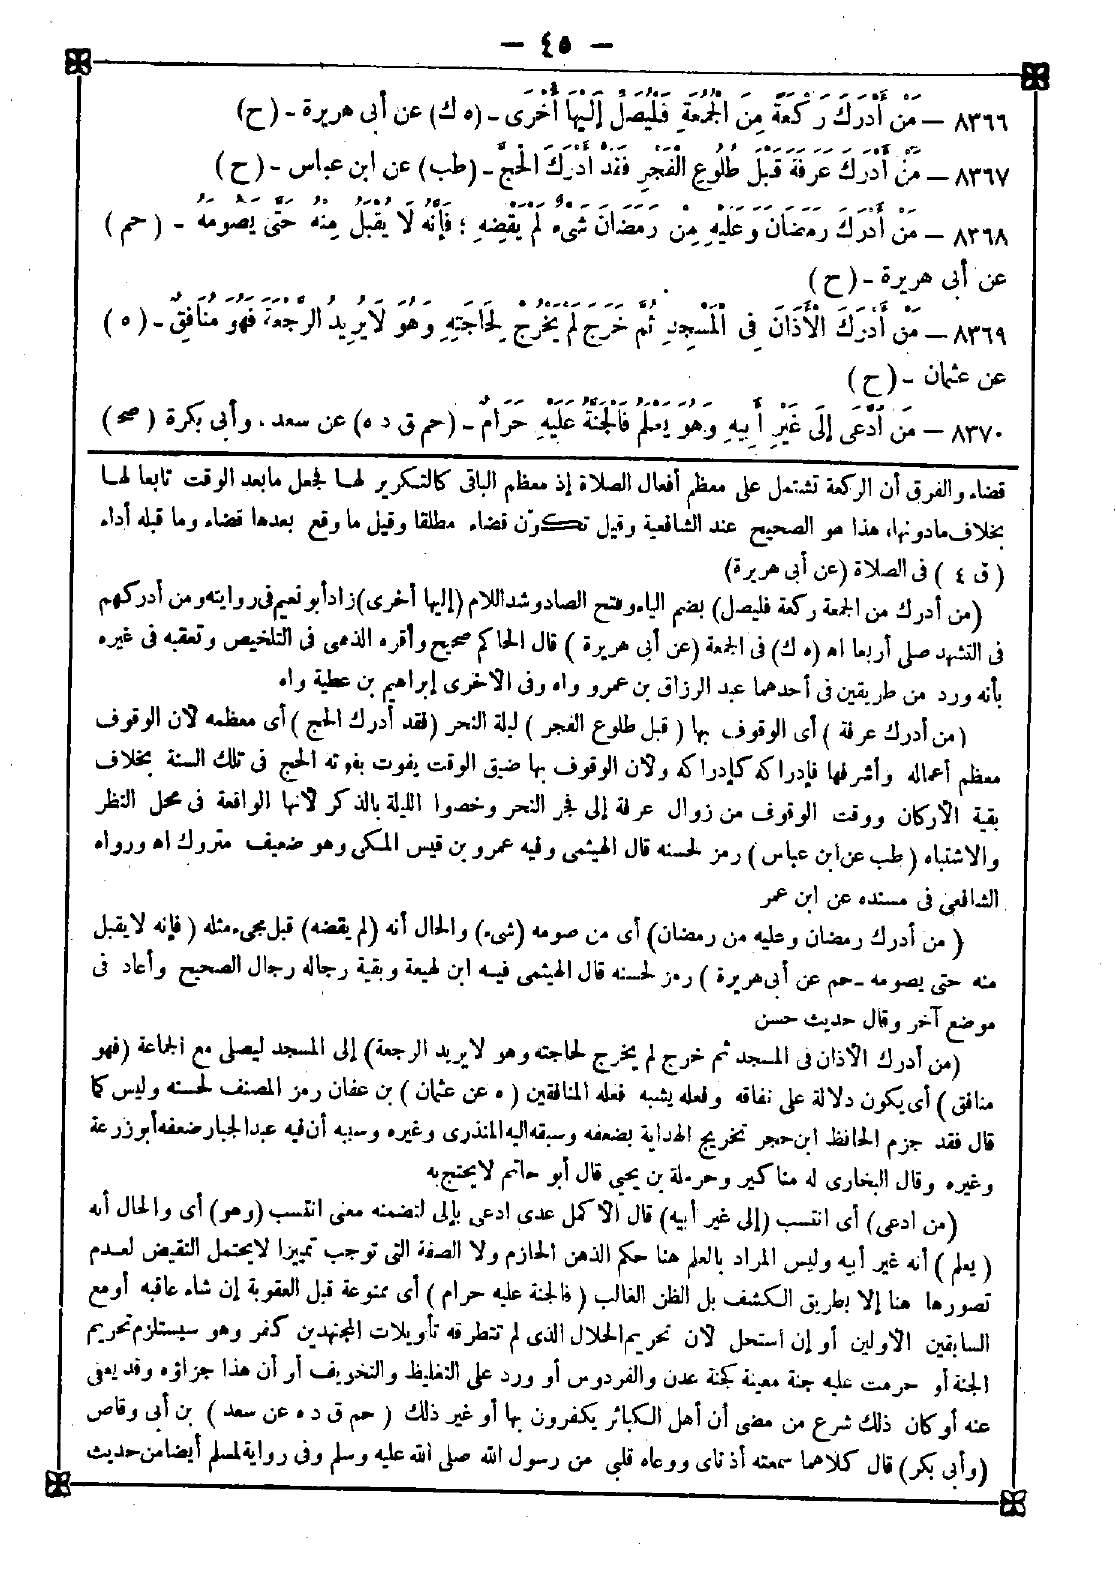 — ٤٥ —
٨٣٦٦ — مَنْ أَدْرَكَ رَكْعَةً مِنَ الْجُمُعَةِ فَلْيُصَلِّ إِلَيْهَا أُخْرَى - (ه ك) عن أبى هريرة - (ح)
٨٣٦٧ — مَنْ أَدْرَكَ عَرَفَةَ قَبْلَ طُلُوعِ الْفَجْرِ فَقَدْ أَدْرَكَ الْحَجَّ - (طب) عن ابن عباس - (ح)
٨٣٦٨ — مَنْ أَدْرَكَ رَمَضَانَ وَعَلَيْهِ مِنْ رَمَضَانَ شَىْءٌ لَمْ يَقْضِهِ ؛ فَإِنَّهُ لَا يُقْبَلُ مِنْهُ حَتَّى يَصُومَهُ - (حم)
عن أبى هريرة - (ح)
٨٣٦٩ — مَنْ أَدْرَكَ الْأَذَانَ فِى الْمَسْجِدِ ثُمَّ خَرَجَ لَمْ يَخْرُجْ لِحَاجَتِهِ وَهُوَ لَا يُرِيدُ الرَّجْعَةَ فَهُوَ مُنَافِقٌ - (ه)
عن عثمان - (ح)
٨٣٧٠ — مَنِ ادَّعَى إِلَى غَيْرِ أَبِيهِ وَهُوَ يَعْلَمُ فَالْجَنَّةُ عَلَيْهِ حَرَامٌ - (حم ق د ه) عن سعد، وأبى بكرة (صح)
قضاء والفرق أن الركعة تشتمل على معظم أفعال الصلاة إذ معظم الباقى كالتكرير لها فجعل مابعد الوقت تابعا لها
بخلاف مادونها، هذا هو الصحيح عند الشافعية وقيل تكون قضاء مطلقا وقيل ما وقع بعدها قضاء وما قبله أداء
(ق ٤) فى الصلاة (عن أبى هريرة)
(من أدرك من الجمعة ركعة فليصل) بضم الياء وفتح الصاد وشد اللام (إليها أخرى) زاد أبو نعيم فى روايته ومن أدركهم
فى التشهد صلى أربعا اه (ه ك) فى الجمعة (عن أبى هريرة) قال الحاكم صحيح وأقره الذهبى فى التلخيص وتعقبه فى غيره
بأنه ورد من طريقين فى أحدهما عبد الرزاق بن عمرو واه وفى الاخرى إبراهيم بن عطية واه
(من أدرك عرفة) أى الوقوف بها (قبل طلوع الفجر) ليلة النحر (فقد أدرك الحج) أى معظمه لأن الوقوف
معظم أعماله وأشرفها فإدراكه كإدراكه ولأن الوقوف بها ضيق الوقت يفوت بفوته الحج فى تلك السنة بخلاف
بقية الأركان ووقت الوقوف من زوال عرفة إلى فجر النحر وخصوا الليلة بالذكر لأنها الواقعة فى محل النظر
والاشتباه (طب عن ابن عباس) رمز لحسنه قال الهيثمى وفيه عمرو بن قيس المكى وهو ضعيف متروك اه ورواه
الشافعى فى مسنده عن ابن عمر
(من أدرك رمضان وعليه من رمضان) أى من صومه (شىء) والحال أنه (لم يقضه) قبل مجىء مثله (فإنه لا يقبل
منه حتى يصومه - حم عن أبى هريرة) رمز لحسنه قال الهيثمى فيه ابن لهيعة وبقية رجاله رجال الصحيح وأعاد فى
موضع آخر وقال حديث حسن
(من أدرك الأذان فى المسجد ثم خرج لم يخرج لحاجته وهو لا يريد الرجعة) إلى المسجد ليصلى مع الجماعة (فهو
منافق) أى يكون دلالة على نفاقه وفعله يشبه فعله المنافقين (ه عن عثمان) بن عفان رمز المصنف لحسنه وليس كما
قال فقد جزم الحافظ ابن حجر تخريج الهداية بضعفه وسبقه اليه المنذرى وغيره وسببه أن فيه عبد الجبار ضعفه أبو زرعة
وغيره وقال البخارى له مناكير وحرملة بن يحيى قال أبو حاتم لا يحتج به
(من ادعى) أى انتسب (إلى غير أبيه) قال الأكمل عدى ادعى بإلى لتضمنه معنى انتسب (وهو) أى والحال أنه
(يعلم) أنه غير أبيه وليس المراد بالعلم هنا حكم الذهن الجازم ولا الصفة التى توجب تمييزا لا يحتمل النقيض لعدم
تصورها هنا إلا بطريق الكشف بل الظن الغالب (فالجنة عليه حرام) أى ممنوعة قبل العقوبة إن شاء عاقبه أو مع
السابقين الأولين أو إن استحل لأن تحريم الحلال الذى لم تتطرقه تأويلات المجتهدين كفر وهو سيستلزم تحريم
الجنة أو حرمت عليه جنة معينة كجنة عدن والفردوس أو ورد على التغليظ والتخويف أو أن هذا جزاؤه وقد يعفى
عنه أو كان ذلك شرع من مضى أن أهل الكبائر يكفرون بها أو غير ذلك (حم ق د ه عن سعد) بن أبى وقاص
(وأبى بكر) قال كلاهما سمعته أذناى ووعاه قلبى من رسول الله صلى الله عليه وسلم وفى رواية لمسلم أيضا من حديث